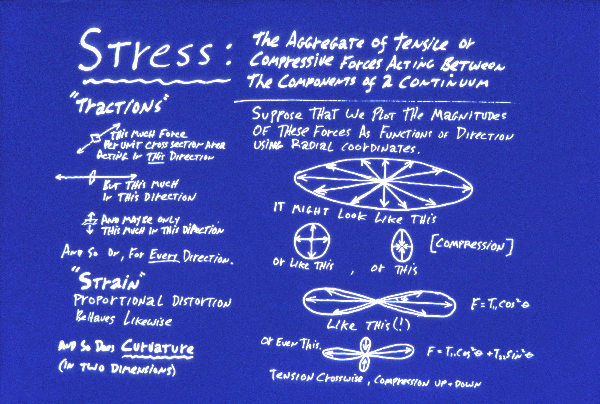 Stress:
The Aggregate of Tensile or
Compressive Forces Acting Between
The Components of a Continuum
"Tractions"
This Much Force
Per Unit Cross Section Area
Acting in This Direction
But This Much
In This Direction
And Maybe Only
This Much In This Direction
And So On, For Every Direction.
"Strain"
Proportional Distortion
Behaves Likewise
And So Does Curvature
(In Two Dimensions)
Suppose That We Plot The Magnitudes
Of These Forces As Functions of Direction
Using Radial Coordinates.
It Might Look Like This
Or Like This, Or This
[Compression]
Like This(!)
F=T₁cos²θ
Or Even This.
F=T₁₁cos²θ+T₂₂sin²θ
Tension Crosswise, Compression Up+Down